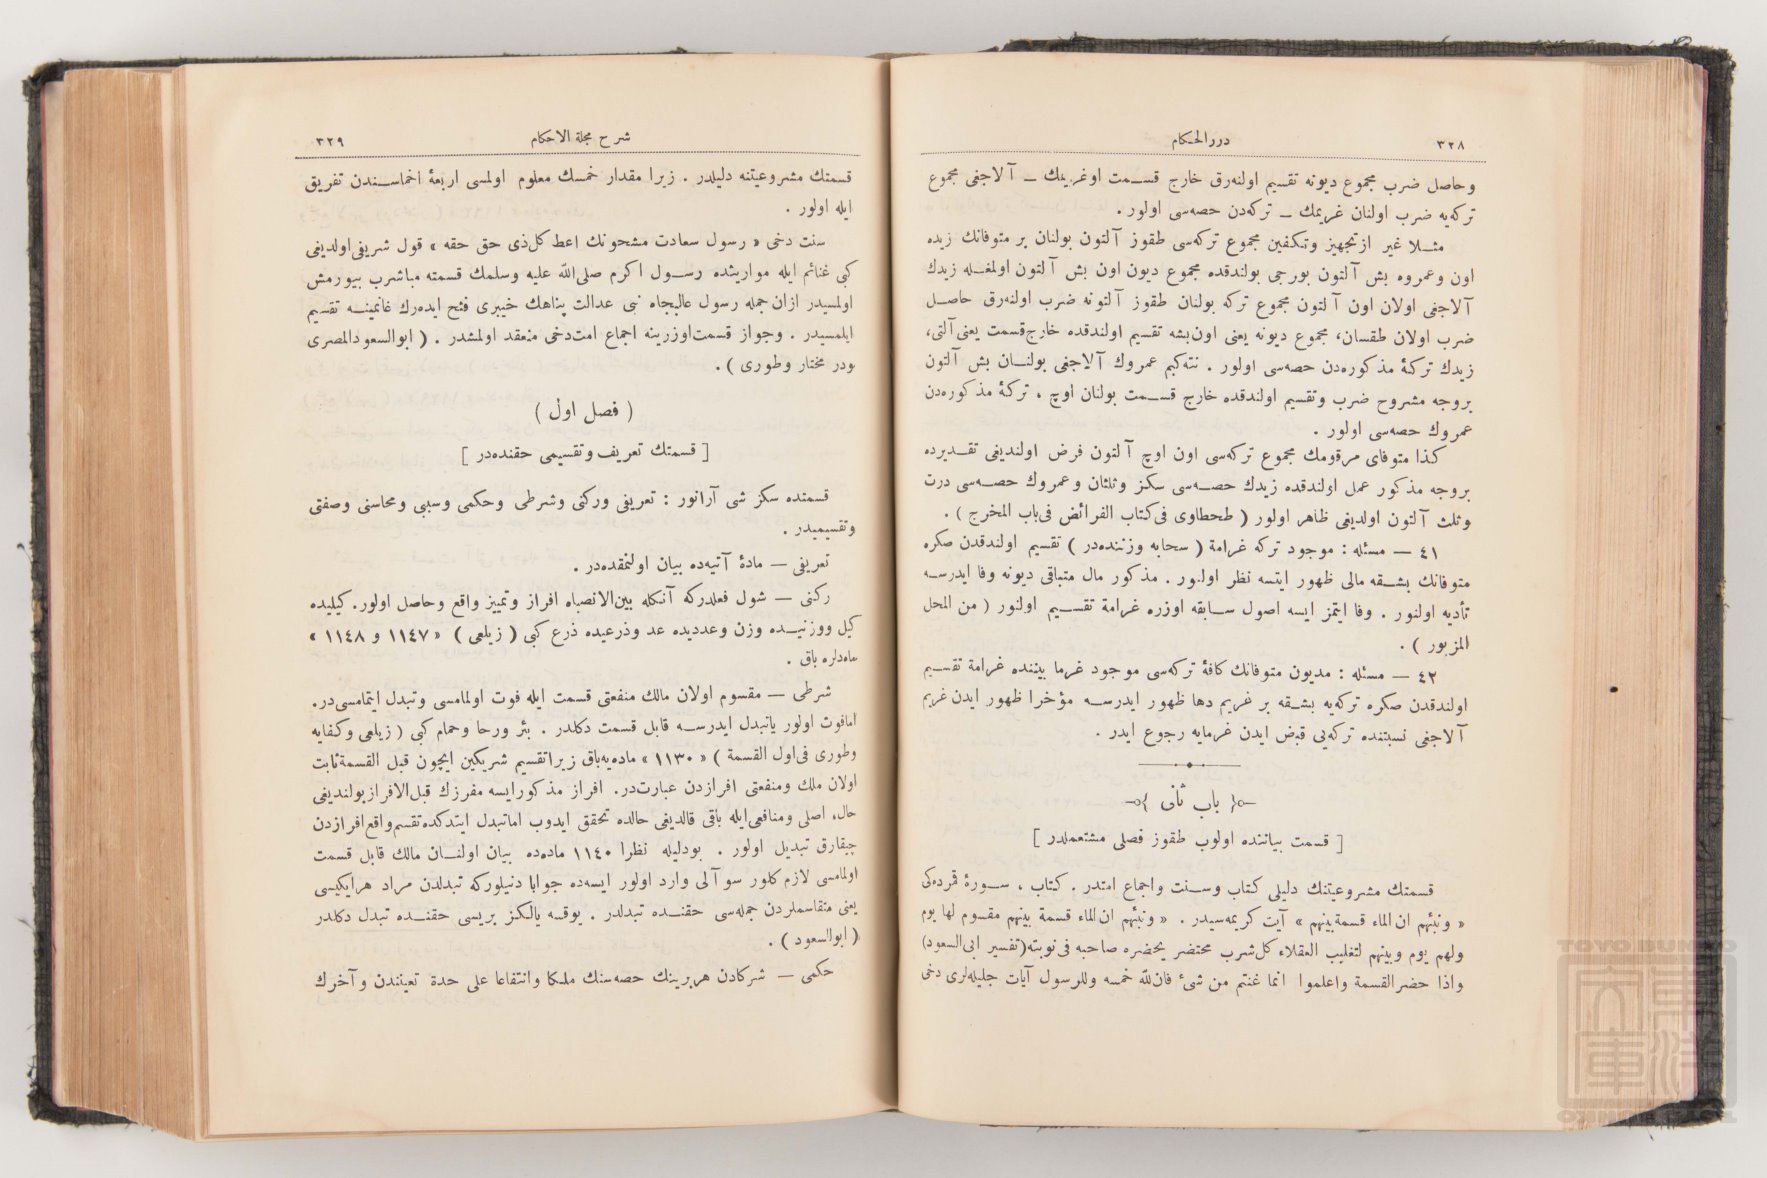 ٣٢٨
دررالحكام
وحاصل ضرب مجموع ديونه تقسيم اولنه‌رق خارج قسمت اوغريمك ــ آلاجغى مجموع
تركه‌يه ضرب اولنان غريمك ــ تركه‌دن حصه‌سى اولور.
مثلا غير ازتجهيز وتكفين مجموع تركه‌سى طقوز آلتون بولنان بر متوفانك زيده
اون وعمروه بش آلتون بورجى بولندقده مجموع ديون اون بش آلتون اولمغله زيدك
آلاجغى اولان اون آلتون مجموع تركه بولنان طقوز آلتونه ضرب اولنه‌رق حاصل
ضرب اولان طقسان، مجموع ديونه يعنى اون‌بشه تقسيم اولندقده خارج‌قسمت يعنى‌آلتى،
زيدك تركهٔ مذكوره‌دن حصه‌سى اولور . نته‌كيم عمروك آلاجغى بولنان بش آلتون
بروجه مشروح ضرب وتقسيم اولندقده خارج قسمت بولنان اوچ ، تركهٔ مذكوره‌دن
عمروك حصه‌سى اولور .
كذا متوفاى مرقومك مجموع تركه‌سى اون اوچ آلتون فرض اولنديغى تقديرده
بروجه مذكور عمل اولندقده زيدك حصه‌سى سكز وثلثان وعمروك حصه‌سى درت
وثلث آلتون اولديغى ظاهر اولور ( طحطاوى فى‌كتاب الفرائض فى‌باب المخرج ) .
٤١ — مسئله : موجود تركه غرامة ( سحابه وزننده‌در ) تقسيم اولندقدن صكره
متوفانك بشقه مالى ظهور ايتسه نظر اولنور . مذكور مال متباقى ديونه وفا ايدرسه
تأديه اولنور . وفا ايتمز ايسه اصول سابقه اوزره غرامة تقسيم اولنور ( من المحل
المزبور ) .
٤٢ — مسئله : مديون متوفانك كافهٔ تركه‌سى موجود غرما بيننده غرامة تقسيم
اولندقدن صكره تركه‌يه بشقه بر غريم دها ظهور ايدرسه مؤخرا ظهور ايدن غريم
آلاجغى نسبتنده تركه‌يى قبض ايدن غرمايه رجوع ايدر .
باب ثانى
[ قسمت بياننده اولوب طقوز فصلى مشتملدر ]
قسمتك مشروعيتنك دليلى كتاب وسنت واجماع امتدر . كتاب ، سورهٔ قمرده‌كى
« ونبئهم ان الماء قسمة‌بينهم » آيت كريمه‌سيدر . « ونبئهم ان‌الماء قسمة بينهم مقسوم لها يوم
ولهم يوم وبينهم لتغليب العقلاء كل‌شرب محتضر يحضره صاحبه فى‌نوبته(تفسير ابى‌السعود)
واذا حضرالقسمة واعلموا انما غنتم من شئ فان‌لله خمسه وللرسول آيات جليله‌لرى دخى
شرح مجلة الاحكام
٣٢٩
قسمتك مشروعيتنه دليلدر . زيرا مقدار خمسك معلوم اولمسى اربعهٔ اخماسندن تفريق
ايله اولور .
سنت دخى « رسول سعادت مشحونك اعط كل‌ذى حق حقه » قول شريفى‌اولديغى
كبى غنائم ايله مواريثده رسول اكرم صلى‌الله عليه وسلمك قسمته مباشرب بيورمش
اولمسيدر ازان جمله رسول عاليجاه نبى عدالت پناهك خيبرى فتح ايده‌رك غانمينه تقسيم
ايلمسيدر . وجواز قسمت‌اوزرينه اجماع امت‌دخى منعقد اولمشدر . ( ابوالسعودالمصرى
ودر مختار وطورى ) .
( فصل اول )
[ قسمتك تعريف وتقسيمى حقنده‌در ]
قسمتده سكز شى آرانور : تعريفى وركنى وشرطى وحكمى وسببى ومحاسنى وصفتى
وتقسيميدر .
تعريفى — مادهٔ آتيه‌ده بيان اولنمقده‌در .
ركنى — شول فعلدركه آنكله بين‌الانصباء افراز وتمييز واقع وحاصل اولور. كيليده
كيل ووزنيده وزن وعدديده عد وذرعيده ذرع كبى ( زيلعى ) « ١١٤٧ و ١١٤٨ »
ماده‌لره باق .
شرطى — مقسوم اولان مالك منفعتى قسمت ايله فوت اولمامسى وتبدل ايتمامسى‌در.
امافوت اولور ياتبدل ايدرسه قابل قسمت دكلدر . بئر ورحا وحمام كبى ( زيلعى وكفايه
وطورى فى‌اول القسمة ) « ١١٣٠ » ماده‌يه‌باق زيراتقسيم شريكين ايچون قبل القسمةثابت
اولان ملك ومنفعتى افرازدن عبارت‌در. افراز مذكورايسه مفرزك قبل‌الافرازبولنديغى
حال، اصلى ومنافعى‌ايله باقى قالديغى حالده تحقق ايدوب اماتبدل ايتدكده‌تقسم‌واقع‌افرازدن
چيقارق تبديل اولور . بودليله نظرا ١١٤٠ ماده‌ده بيان اولنان مالك قابل قسمت
اولمامسى لازم كلور سوآلى وارد اولور ايسه‌ده جوابا دنيلوركه تبدلدن مراد هرايكيسى
يعنى متقاسملردن جمله‌سى حقنده تبدلدر . يوقسه يالكز بريسى حقنده تبدل دكلدر
( ابوالسعود ) .
حكمى — شركادن هربرينك حصه‌سنك ملكا وانتفاعا على حدة تعينندن وآخرك